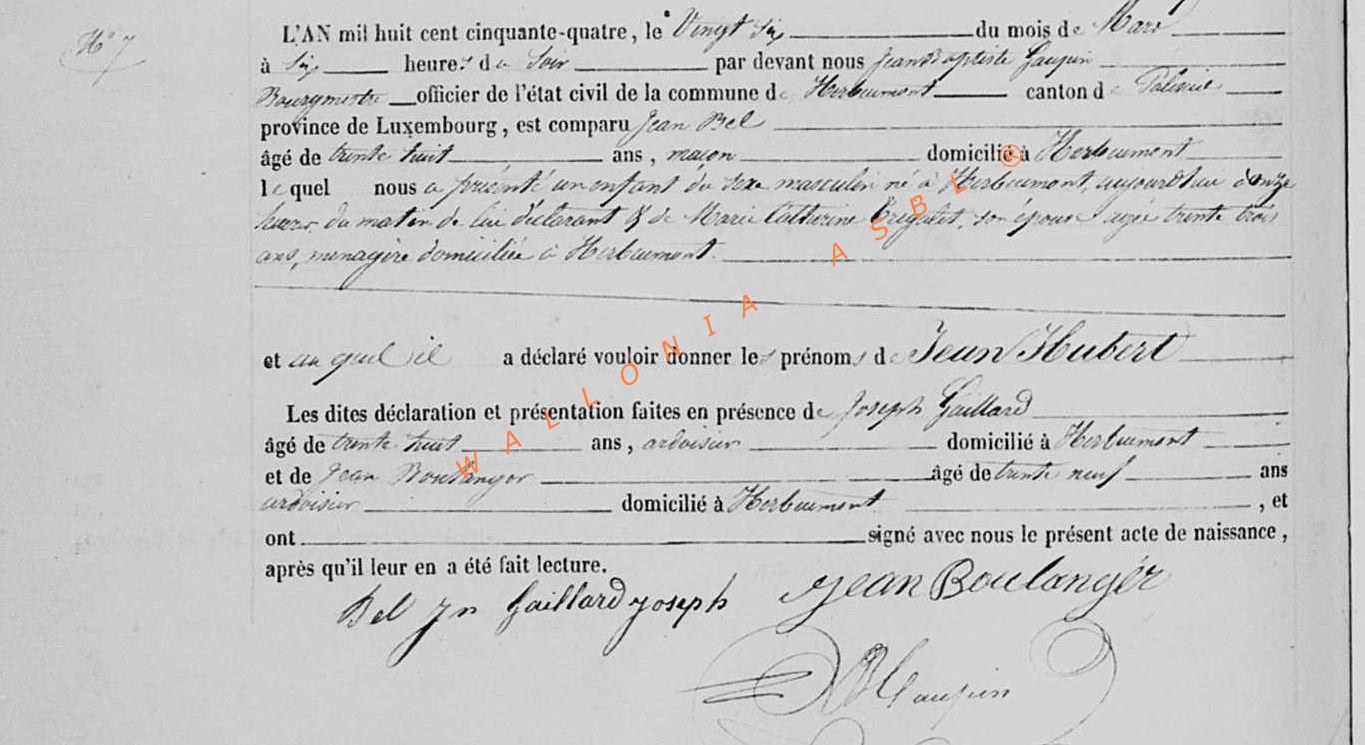 N° 7
L'AN mil huit cent cinquante-quatre, le Vingt Six du mois de Mars
à Six heures du Soir par devant nous Jean Baptiste Gaupin
Bourgmestre officier de l'état civil de la commune de Herbeumont canton de Paliseul
province de Luxembourg, est comparu Jean Bel
âgé de trente huit ans, maçon domicilié à Herbeumont
lequel nous a présenté un enfant du sexe masculin né à Herbeumont, aujourd'hui à onze
heures du matin de lui déclarant & de Marie Catherine son épouse agée trente trois
ans, menagère domiciliée à Herbeumont.
et au quel il a déclaré vouloir donner les prénoms de Jean Hubert
Les dites déclaration et présentation faites en présence de Joseph Gaillard
âgé de trente huit ans, ardoisier domicilié à Herbeumont
et de Jean Boulanger âgé de trente neuf ans
ardoisier domicilié à Herbeumont, et
ont signé avec nous le présent acte de naissance,
après qu'il leur en a été fait lecture.
Bel Jn Gaillard joseph Jean Boulanger
Gaupin
WALLONIA ASBL ®